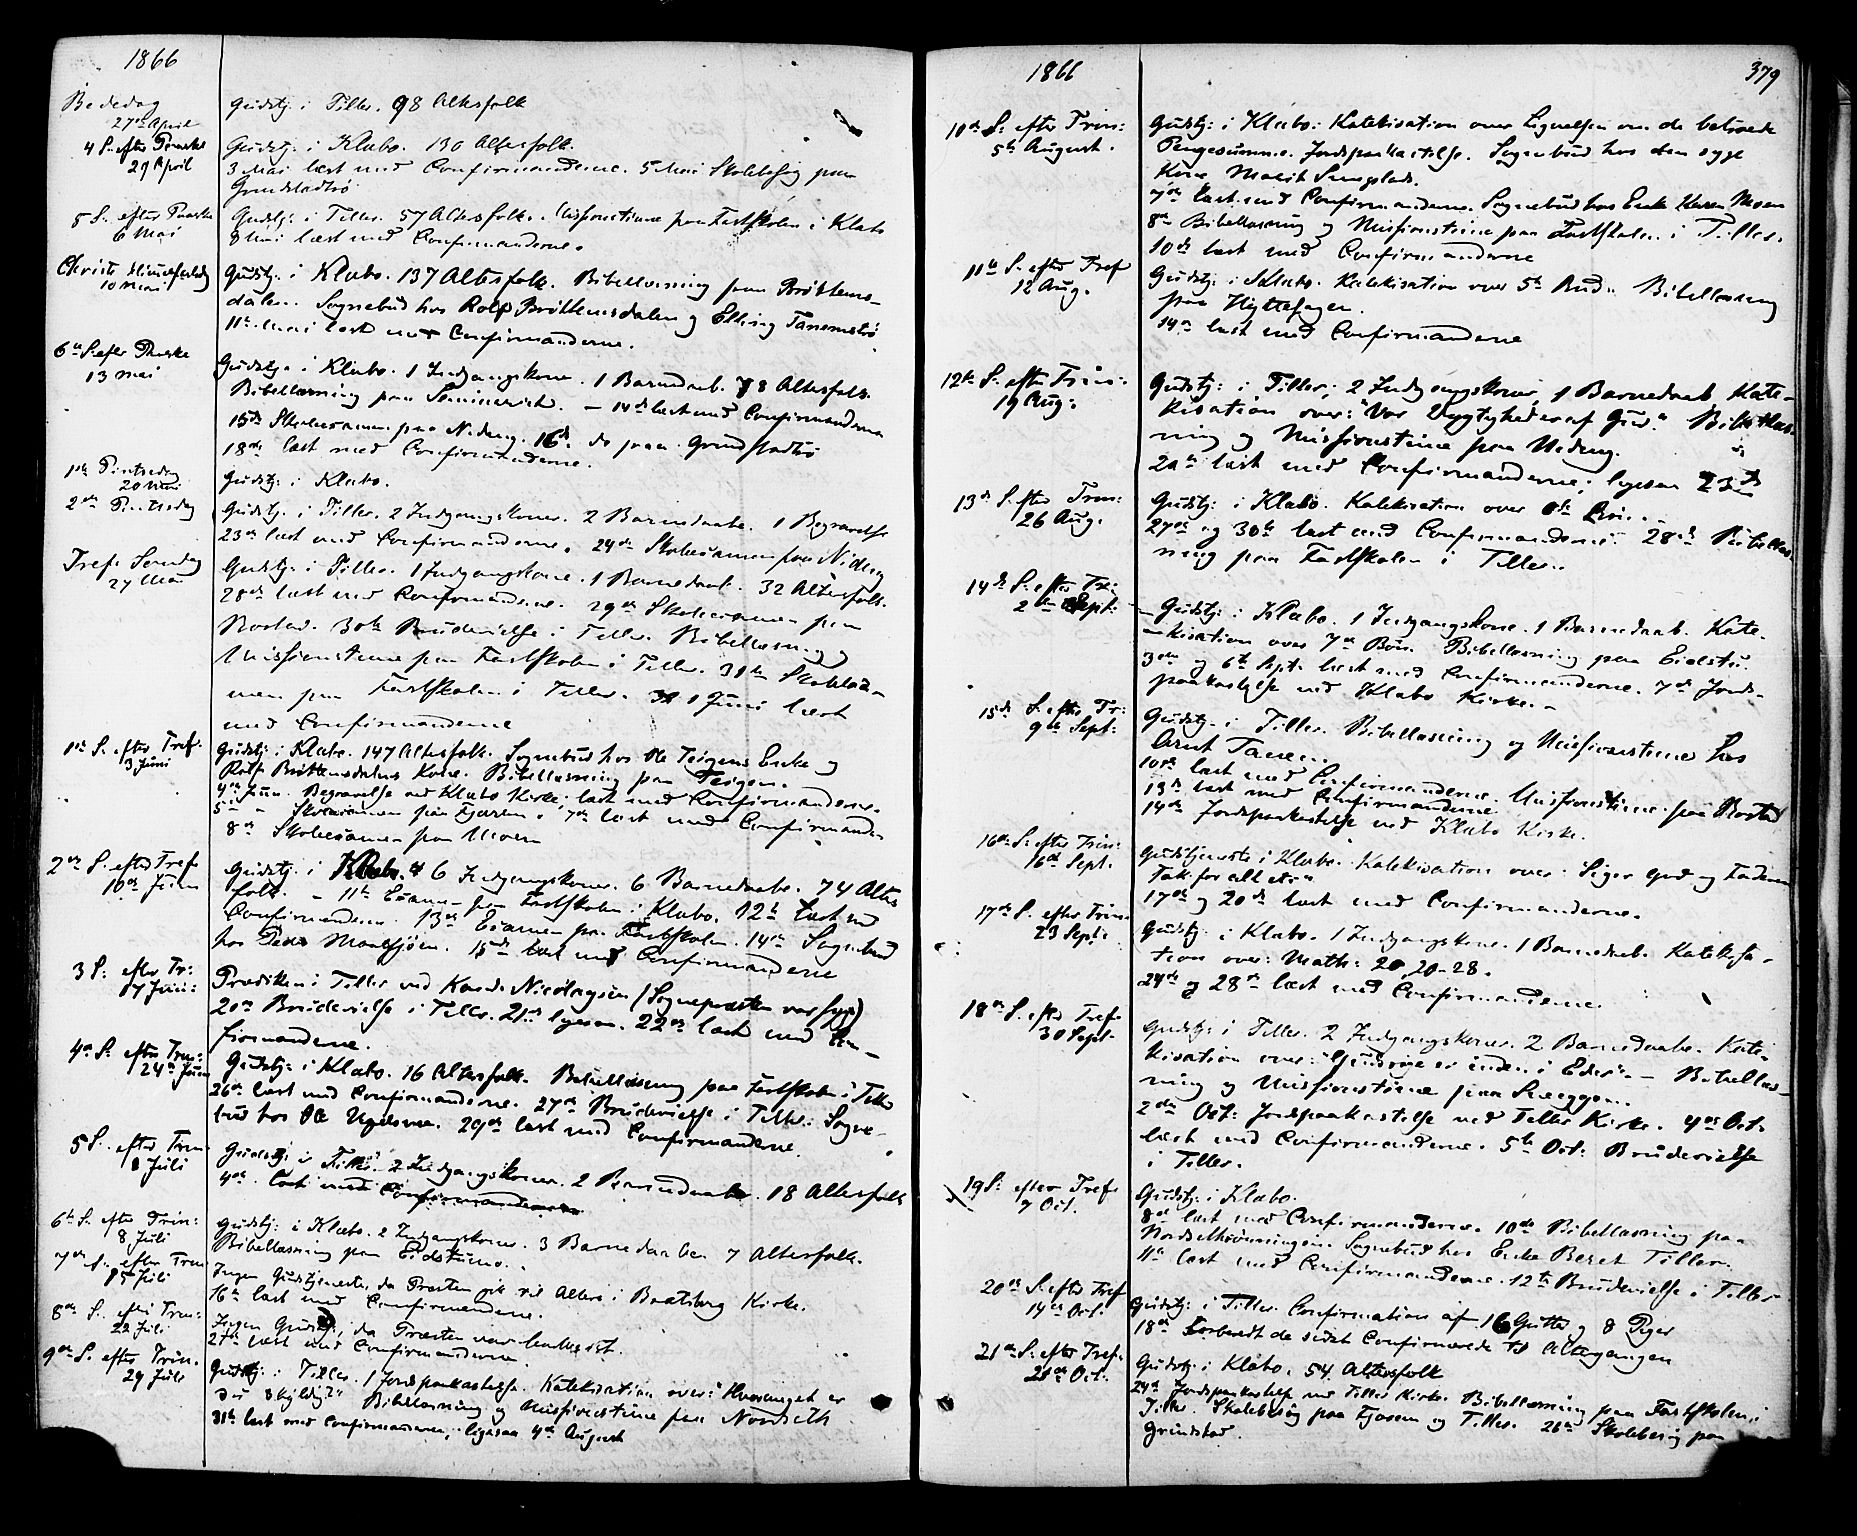 1866
Bededag
27de April
Gudstj: i Tiller. 98 Altersfolk
4 S. efter Paaske
29 April
Gudstj: i Klæbo. 130 Altersfolk.
3 Mai læst med Confirmanderne. 5 Mai Skolebesøg paa
Grundstadtrø
5 S. efter Paaske
6 Mai
Gudstj: i Tiller. 57 Altersfolk. Missionstime paa Fastskolen i Klæbo
8 Mai læst med Confirmanderne.
Christi Himmelfartsdag
10 Mai
Gudstj: i Klæbo. 137 Altersfolk. Bibellæsning paa Brøttems-
dalen. Sognebud hos Rolf Brøttemsdalen og Elling Tanemstrø
11te Mai læst med Confirmanderne.
6te S. efter Paaske
13 Mai
Gudstj: i Klæbo. 1 Indgangskone. 1 Barnedaab. 78 Altersfolk.
Bibellæsning paa Seminariet. – 14de læst med Confirmanderne
15de Skoleexamen paa Nideng. 16de do paa Grundstadtrø
18de læst med Confirmanderne.
1ste Pintsedag
20 Mai
Gudstj: i Klæbo.
2den Pintsedag
Gudstj: i Tiller. 2 Indgangskoner. 2 Barnedaabe. 1 Begravelse
23de læst med Confirmanderne. 24de Skoleexamen paa Nideng
Tref. Søndag
27 Mai
Gudstj: i Tiller. 1 Indgangskone. 1 Barnedaab. 32 Altersfolk.
28de læst med Confirmanderne. 29de Skoleexamen paa
Rostad. 30te Brudevielse i Tiller. Bibellæsning og
Missionstime paa Fastskolen i Tiller. 31te Skoleexa-
men paa Fastskolen i Tiller. 1 Juni læst
med Confirmanderne
1ste S. efter Tref.
3 Juni
Gudstj: i Klæbo. 147 Altersfolk. Sognebud hos Ole Teigens Enke og
Rolf Brøttemsdalens Kone. Bibellæsning paa Teigen.
4de Juni Begravelse ved Klæbo Kirke; læst med Confirmanderne.
5te – Skoleexamen paa Fjæren. 7de læst med Confirmander
8de Skoleexamen paa Moen
2den S. efter Tref
10de Juni
Gudstj: i Klæbo. 6 Indgangskoner. 6 Barnedaabe. 74 Alters
folk. – 11te Examen paa Fastskolen i Klæbo. 12te læst med
Confirmanderne. 13de Examen paa Fastskolen. 14de Sognebud
hos Peder Maasjøen. 15de læst med Confirmanderne
3 S. efter Tr:
17 Juni:
Prædiken i Tiller ved Kand. Nicolaysen (Sognepresten var syg)
20de Brudevielse i Tiller. 21de ligesaa. 22de læst med Con-
firmanderne.
4de S. efter Trin:
24de Juni
Gudstj: i Klæbo. 16 Altersfolk. Bibellæsning paa Fastskolen i Tiller
26de læst med Confirmanderne. 27de Brudevielse i Tiller. Sogne-
bud hos Ole Ugelsmo. 29de læst med Confirmanderne.
5 S. efter Trin
1 Juli
Gudstj: i Tiller. 2 Indgangskoner. 2 Barnedaabe. 18 Altersfolk
4de læst med Confirmanderne
6te S. efter Trin:
8 Juli
Gudstj: i Klæbo. 2 Indgangskoner. 3 Barnedaaben 7 Altersfolk.
Bibellæsning paa Eidstumo.
7de S. efter Trin
15 Juli
Ingen Gudstjeneste, da Præsten gik til Alters i Bratsberg Kirke.
16de læst med Confirmanderne.
8de S. efter Trin:
22 Juli
Ingen Gudstj:, da Præsten var bortreist.
27de læst med Confirmanderne.
9de S. efter Trin.
29 Juli
Gudstj: i Tiller. 1 Jordpaakastelse. Katekisation over: "Hvormeget er
Du skyldig?" Bibellæsning og Missionstime paa Nordseth
31te læst med Confirmanderne, ligesaa 4de August
1866
379
10de S. efter Trin:
5te August.
Gudstj: i Klæbo. Katekisation over Lignelsen om de betroede
Pengesummer. Jordpaakastelse. Sognebud hos den syge
Kone Marit
7de læst med Confirmanderne. Sognebud hos Enke Karen Moen
8de Bibellæsning og Missionstime paa Fastskolen i Tiller.
10de læst med Confirmanderne
11te S. efter Tref
12 Aug.
Gudstj: i Klæbo. Katekisation over 5te Bud. Bibellæsning
paa Hyttefagen.
14de læst med Confirmanderne
12te S. efter Trin:
19 Aug:
Gudstj: i Tiller; 2 Indgangskoner, 1 Barnedaab. Kate-
kisation over: "Vor Dygtighed er af Gud." Bibellæs-
ning og Missionstime paa Nideng.
20de læst med Confirmanderne; ligesaa 23de
13de S. efter Trin:
26 Aug.
Gudstj: i Klæbo. Katekisation over 6te Bøn.
27de og 30te læst med Confirmanderne. 28de Bibellæs
ning paa Fastskolen i Tiller.
14de S. efter Tri:
2den Sept:
Gudstj: i Klæbo. 1 Indgangskone. 1 Barnedaab. Kate-
kisation over 7de Bøn. Bibellæsning paa Eidstu.
3die og 6te Sept. læst med Confirmanderne. 7de Jord-
paakastelse ved Klæbo Kirke.
15de S. efter Tr:
9de Sept:
Gudstj: i Tiller. Bibellæsning og Missionstime hos
Arnt Tanem.
10de læst med Confirmanderne. Missionstime paa Rostad
13de læst med Confirmanderne
14de Jordpaakastelse ved Klæbo Kirke.
16de S. efter Trin:
16de Sept.
Gudstjeneste i Klæbo. Katekisation over: "Siger Gud og Faderen
Tak for alt etc."
17de og 20de læst med Confirmanderne.
17de S. efter Trin
23 Sept:
Gudstj: i Klæbo. 1 Indgangskone. 1 Barnedaab. Katekisa-
tion over: Math: 20, 20-28.
24de og 28de læst med Confirmanderne.
18de S. efter Tref.
30 Sept.
Gudstj: i Tiller. 2 Indgangskoner. 2 Barnedaabe. Kate-
kisation over: "Gudsrige er inden i Eder". – Bibellæs-
ning og Missionstime paa
2den Oct: Jordpaakastelse ved Tiller Kirke. 4de Oct.
læst med Confirmanderne. 5te Oct: Brudevielse
i Tiller.
19 S. efter Tref.
7 Oct.
Gudstj: i Klæbo.
8de læst med Confirmanderne. 10de Bibellæsning paa
Nordsethrønningen. Sognebud hos Enke Beret Tiller.
11te læst med Confirmanderne. 12te Brudevielse i Tiller
20de S. efter Tref
14de Oct.
Gudstj: i Tiller. Confirmation af 16 Gutter og 8 Piger
18de Forberedt de sidst Confirmerede til Altergangen
21de S. efter Tref:
21de Oct.
Gudstj: i Klæbo. 54 Altersfolk
24de Jordpaakastelse ved Tiller Kirke. Bibellæsning paa Fastskolen i
Tiller. Skolebesøg paa Fjæren og Tiller. 26de Skolebesøg paa
Grundstad.